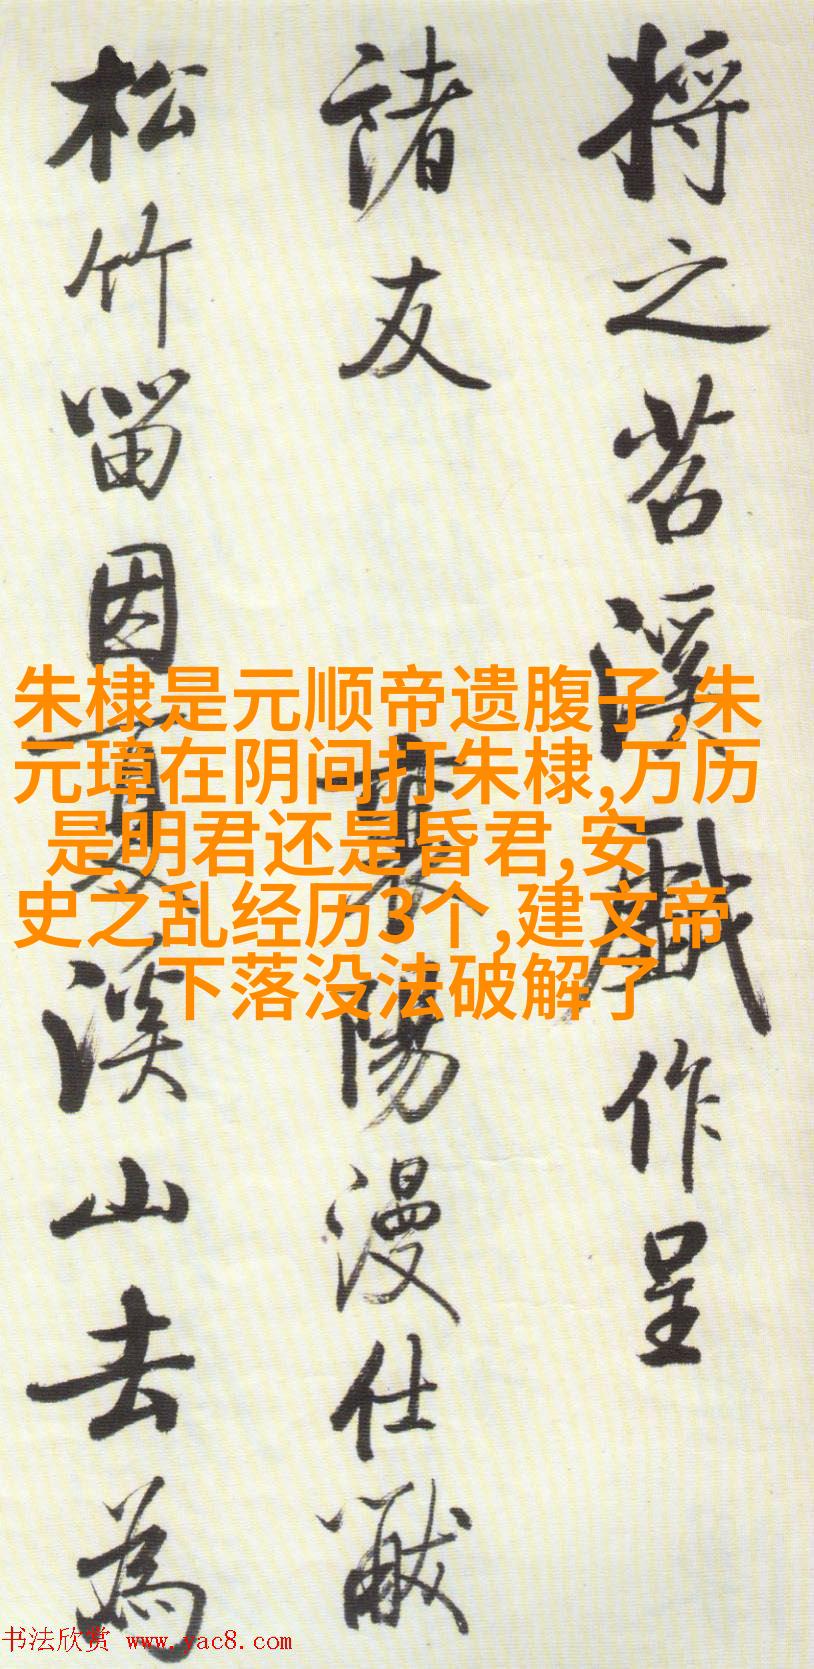 将之苕溪戯作呈
諸友 襄陽漫仕黻
松竹留因夏溪山去為
朱棣是元顺帝遗腹子,朱
元璋在阴间打朱棣,万历
是明君还是昏君,安
史之乱经历3个,建文帝
下落没法破解了
书法欣赏 www.yac8.com